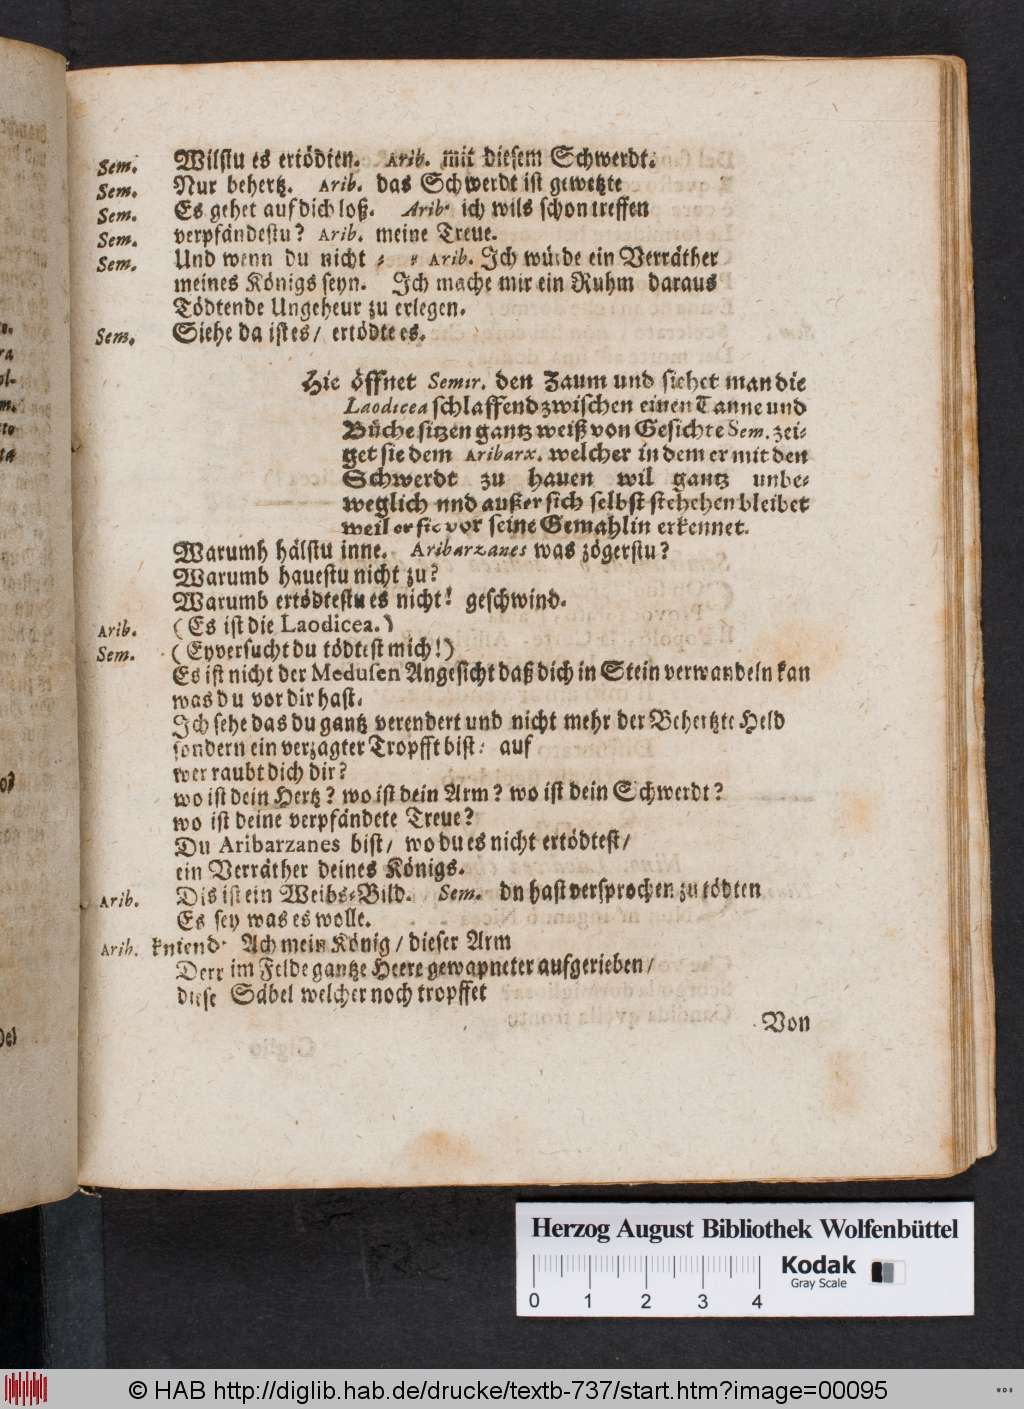 Sem. Wilstu es ertödten. Arib. mit diesem Schwerdt.
Sem. Nur behertz. Arib. das Schwerdt ist gewetzte
Sem. Es gehet auf dich loß. Arib. ich wils schon treffen
Sem. verpfändestu? Arib. meine Treue.
Sem. Und wenn du nicht ⸗ ⸗ Arib. Ich würde ein Verräther
meines Königs seyn. Ich mache mir ein Ruhm daraus
Tödtende Ungeheur zu erlegen.
Sem. Siehe da ist es/ ertödte es.
Hie öffnet Semir. den Zaum und siehet man die
Laodicea schlaffend zwischen einen Tanne und
Büche sitzen gantz weiß von Gesichte Sem. zei⸗
get sie dem Aribarx. welcher in dem er mit den
Schwerdt zu hauen wil gantz unbe⸗
weglich nnd außer sich selbst stehehen bleibet
weil er sie vor seine Gemahlin erkennet.
Warumh hälstu inne. Aribarzanes was zögerstu?
Warumb hauestu nicht zu?
Warumb ertödtestu es nicht! geschwind.
Arib. (Es ist die Laodicea.)
Sem. (Ey versucht du tödtest mich!)
Es ist nicht der Medusen Angesicht daß dich in Stein verwandeln kan
was du vor dir hast.
Ich sehe das du gantz verendert und nicht mehr der Behertzte Held
sondern ein verzagter Tropfft bist: auf
wer raubt dich dir?
wo ist dein Hertz? wo ist dein Arm? wo ist dein Schwerdt?
wo ist deine verpfändete Treue?
Du Aribarzanes bist/ wo du es nicht ertödtest/
ein Verräther deines Königs.
Arib. Dis ist ein Weibs⸗Bild. Sem. dn hast versprochen zu tödten
Es sey was es wolle.
Arib. kniend. Ach mein König/ dieser Arm
Derr im Felde gantze Heere gewapneter aufgerieben/
diese Säbel welcher noch tropffet
Von
Herzog August Bibliothek Wolfenbüttel
0 1 2 3 4
Kodak
Gray Scale
© HAB http://diglib.hab.de/drucke/textb-737/start.htm?image=00095